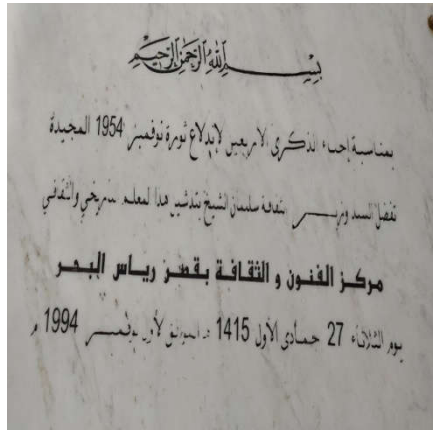 بسم الله الرحمن الرحيم
بمناسبة إحياء الذكرى الأربعين لإندلاع ثورة نوفمبر 1954 المجيدة
تفضل السيد وزير الثقافة سليمان الشيخ بتدشين هذا المعلم التاريخي والثقافي
مركز الفنون و الثقافة بقصر رياس البحر
يوم الثلاثاء 27 جمادى الأول 1415 هـ الموافق لأول نوفمبر 1994 م